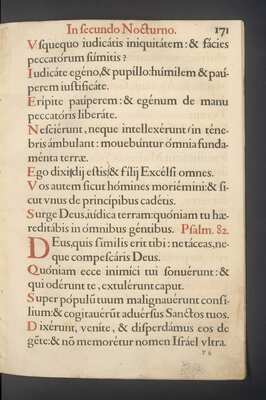 In secundo Nocturno. 171
Vsquequo iudicátis iniquitátem: & fácies
peccatórum súmitis?
Iudicáte egéno, & pupíllo: húmilem & paú-
perem iustificáte.
Erípite paúperem: & egénum de manu
peccatóris liberáte.
Nesciérunt, neque intellexérunt / in téne-
bris ámbulant: mouebúntur ómnia funda-
ménta terræ.
Ego dixi / dij estis / & fílij Excélsi omnes.
Vos autem sicut hómines moriémini: & si-
cut vnus de princípibus cadétis.
Surge Deus, iúdica terram: quóniam tu hæ-
reditábis in ómnibus géntibus. Psalm. 82.
DEus, quis símilis erit tibi: ne táceas, ne-
que compescáris Deus.
Quóniam ecce inimíci tui sonuérunt: &
qui odérunt te, extulérunt caput.
Super pópulũ tuum malignauérunt consí-
lium: & cogitauérũt aduérsus Sanctos tuos.
Dixérunt, veníte, & dispérdámus eos de
gẽte: & nõ memorétur nomen Israél vltra.